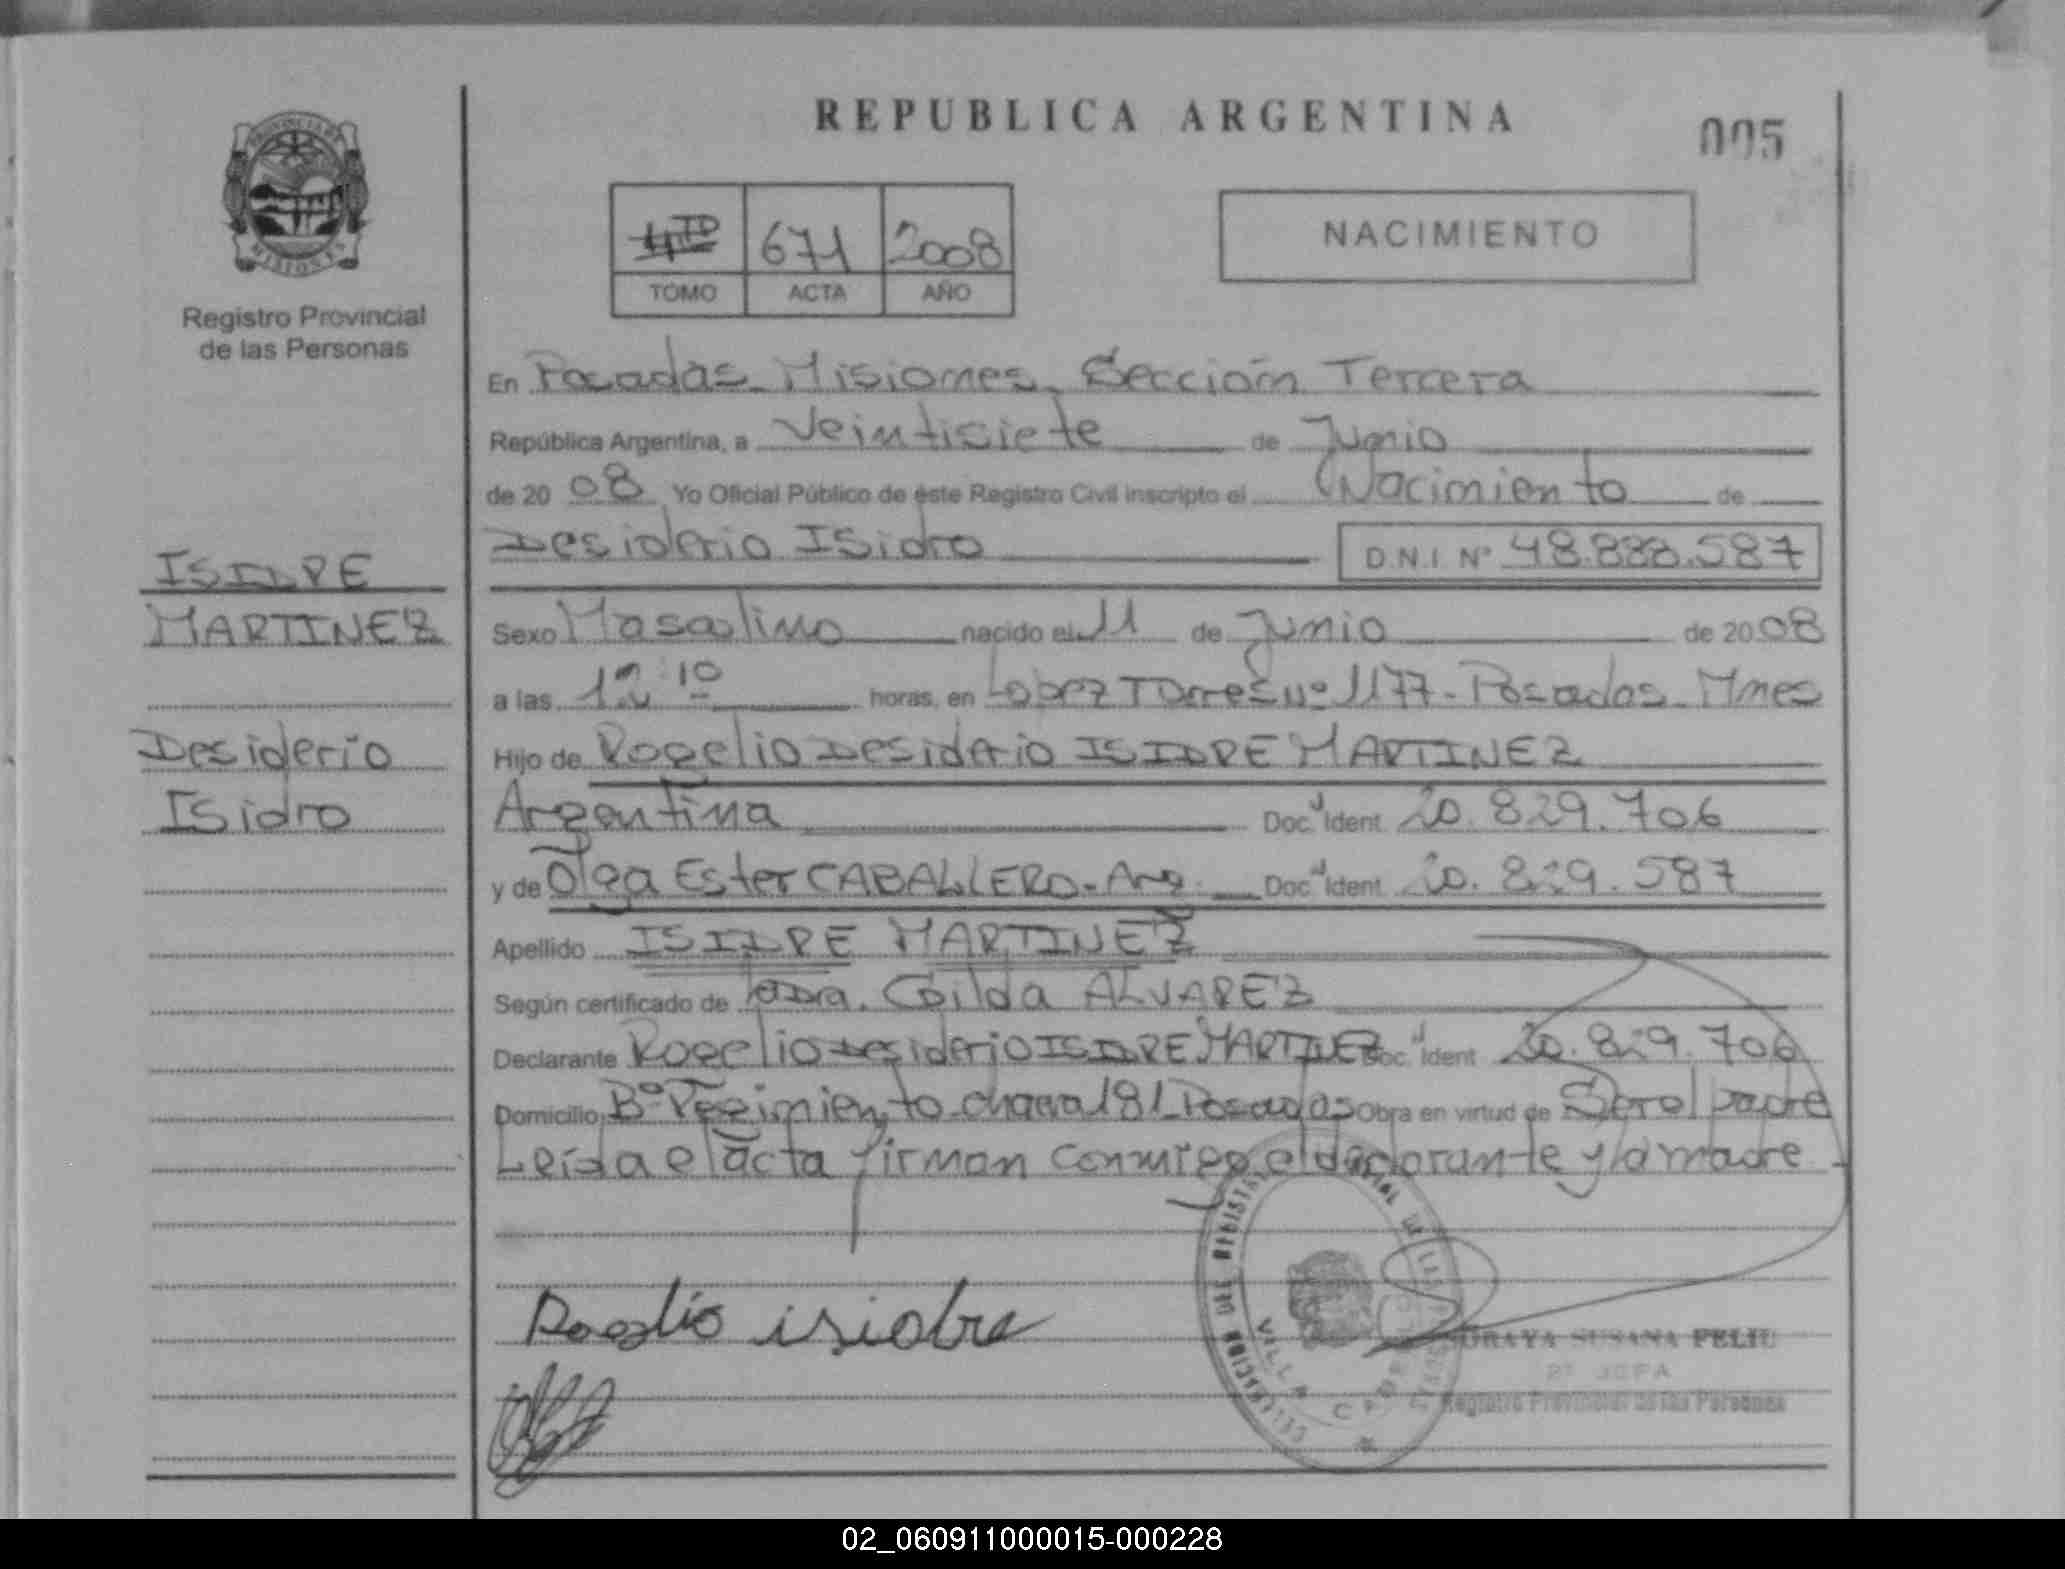 REPUBLICA ARGENTINA
005
PROVINCIA DE
MISIONES
Registro Provincial
de las Personas
671 2008
TOMO ACTA AÑO
NACIMIENTO
En Posadas Misiones, Sección Tercera
República Argentina, a Veintisiete de Junio
de 20 08 Yo Oficial Público de éste Registro Civil inscripto el Nacimiento de
Desiderio Isidro D.N.I. Nº 48.888.587
Sexo Masculino nacido el 11 de Junio de 20 08
a las 12:10 horas, en Lopez Torres nº 1177 - Posadas - Mnes
Hijo de Rogelio Desiderio ISIDRE MARTINEZ
Argentina Doc. Ident. 20.829.706
y de Olga Ester CABALLERO - Arg. Doc. Ident. 20.829.587
Apellido ISIDRE MARTINEZ
Según certificado de Dra. Gilda ALVAREZ
Declarante Rogelio Desiderio ISIDRE MARTINEZ Doc. Ident. 20.829.706
Domicilio Bº Regimiento chacra 181 Posadas Obra en virtud de Ser el padre
Leída el acta firman conmigo el declarante y la madre
ISIDRE
MARTINEZ
Desiderio
Isidro
Rogelio isidre
VILLA CABELLO
SORAYA SUSANA FELIU
2º JEFA
Registro Provincial de las Personas
02_060911000015-000228